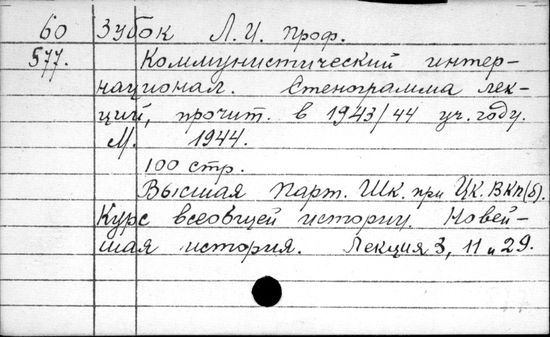 60 Зубок Л.И. проф.
577. Коммунистический интер-
национал. Стенограмма лек-
ций, прочит. в 1943/44 уч. году.
М. 1944.
100 стр.
Высшая Парт. Шк. при Цк. ВКП(б).
Курс всеобщей истории. Новей-
шая история. Лекция 3, 11 и 29.